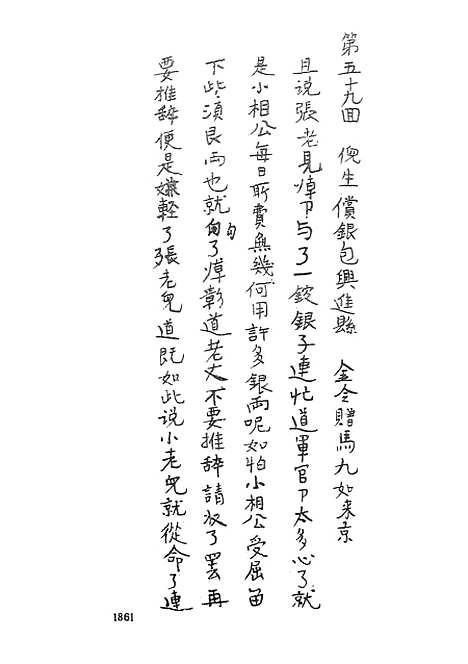 第五十九回 倪生償銀包興進縣 金令贈馬九如来京
且说張老見焯卩与了一錠銀子連忙道軍官卩太多心了就
是小相公每日所費無幾何用許多銀両呢如怕小相公受屈畄
下些湏艮両也就勾了焯彰道老丈不要推辞請收了罢再
要推辞便是嫌輕了張老皃道既如此说小老皃就從命了連
1861